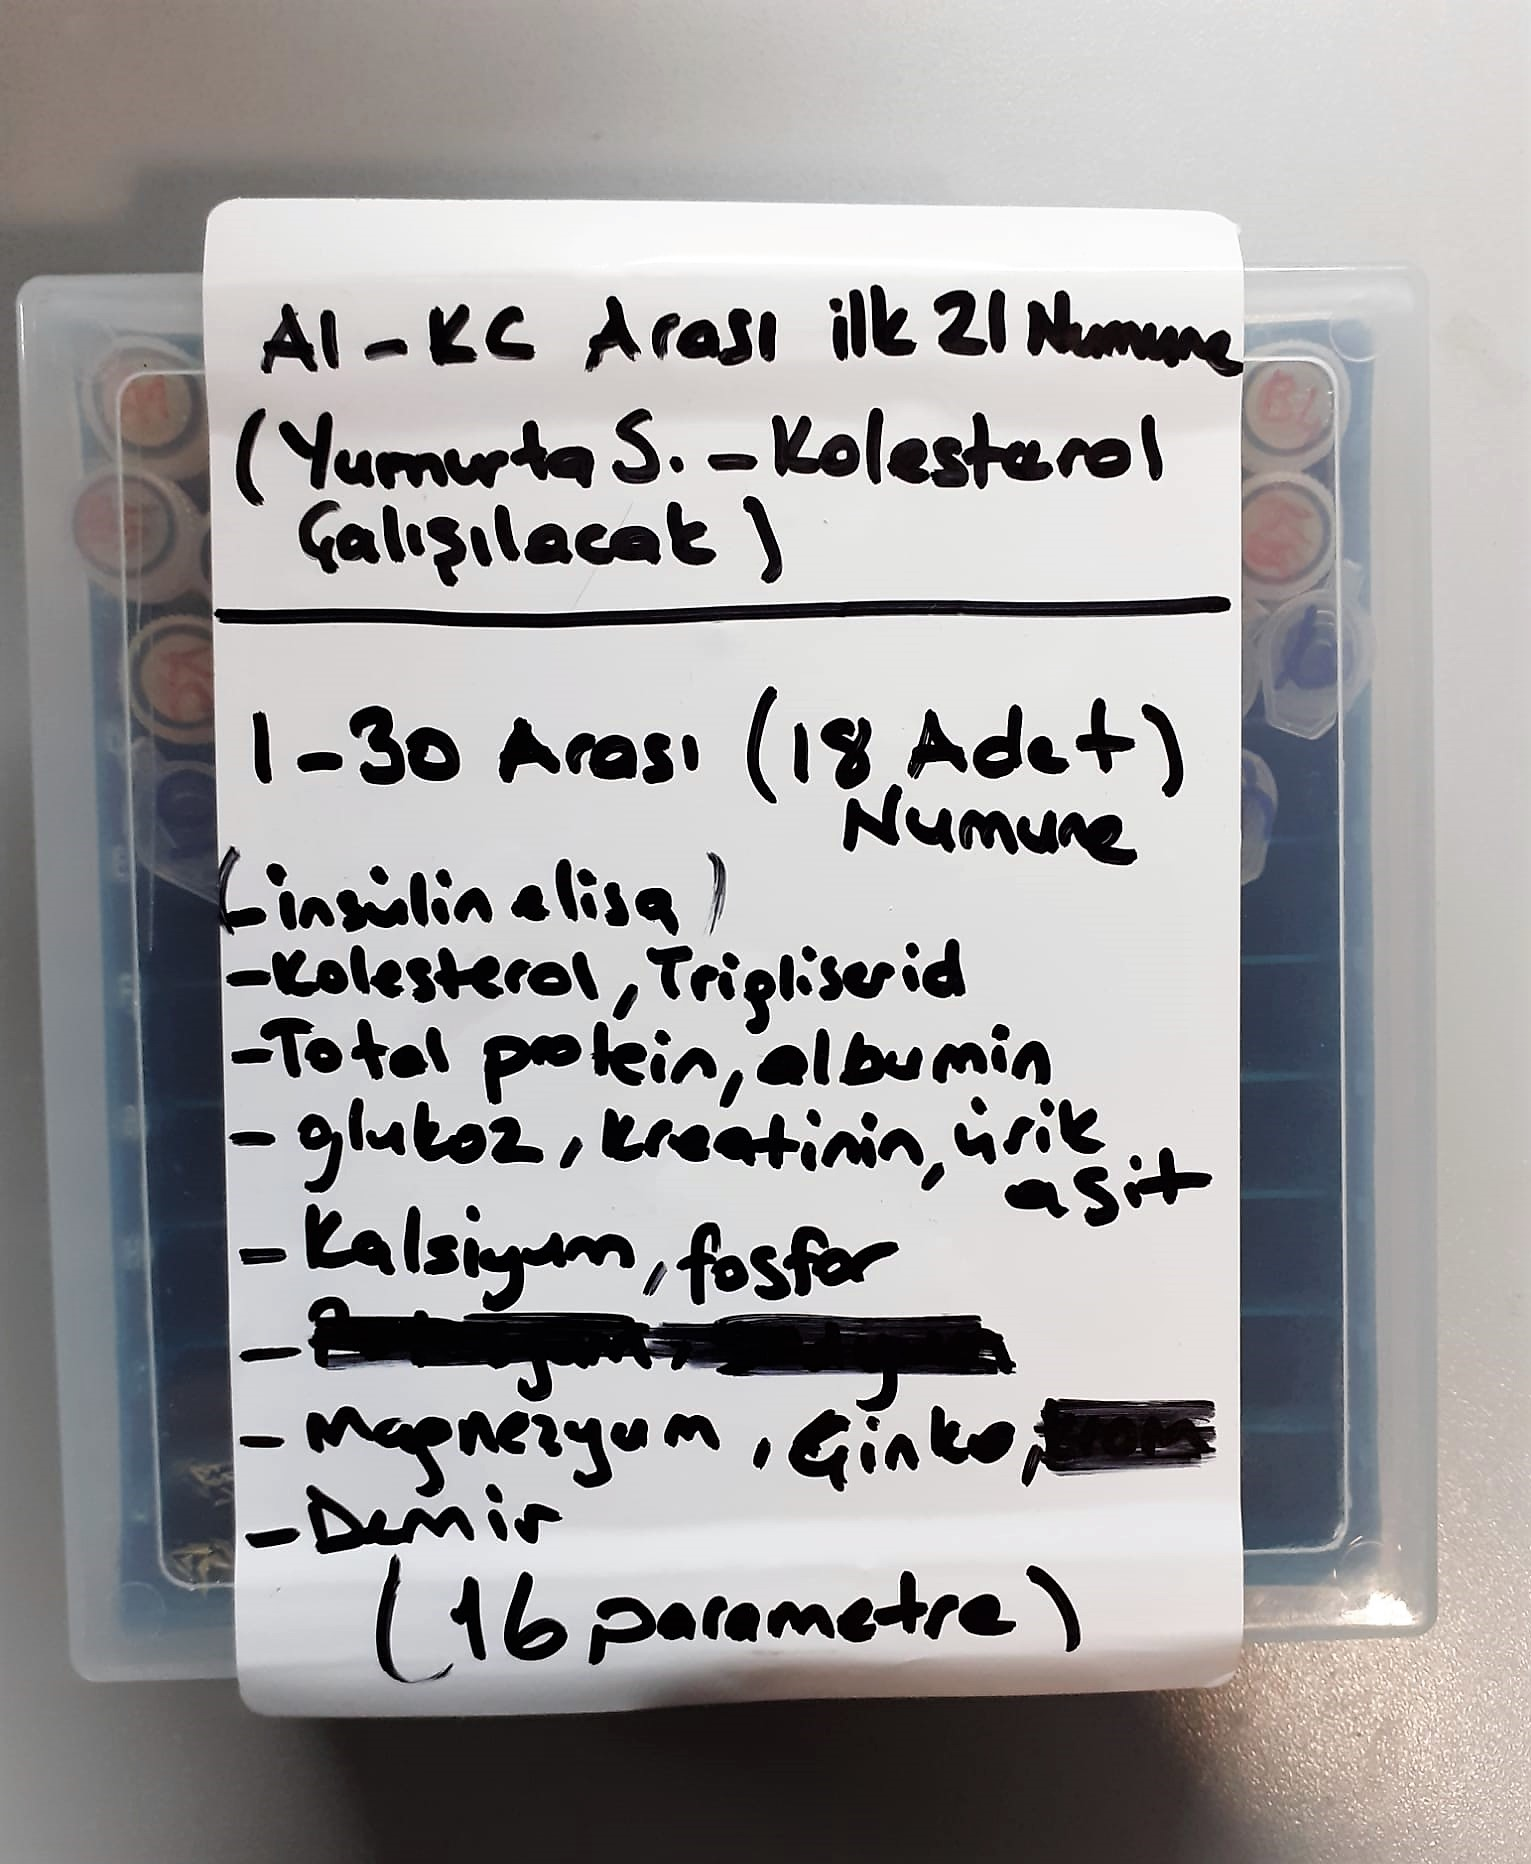 A1 - KC Arası ilk 21 Numune
(Yumurta S. - Kolesterol
Çalışılacak)
1 - 30 Arası (18 Adet)
Numune
(- insülin elisa)
- Kolesterol, Trigliserid
- Total protein, albumin
- glukoz, kreatinin, ürik
asit
- Kalsiyum, fosfor
-
- Magnezyum, Çinko,
- Demir
(16 parametre)